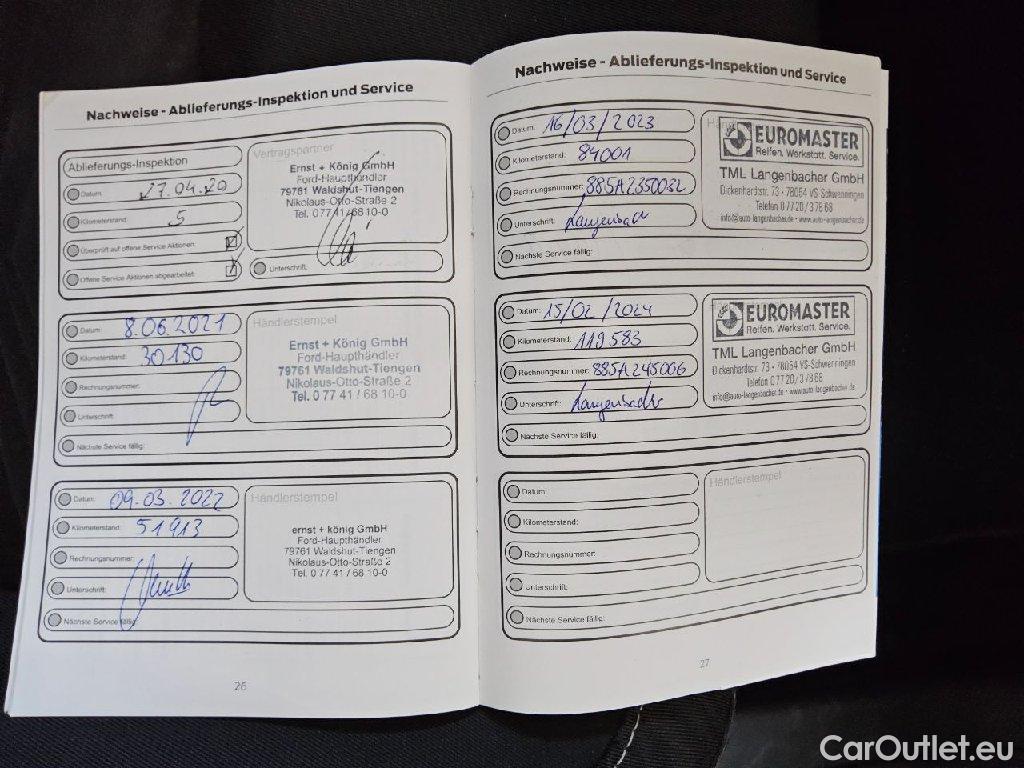 Nachweise - Ablieferungs-Inspektion und Service
Ablieferungs-Inspektion
Datum: 27.04.20
Kilometerstand: 5
Überprüft auf offene Service Aktionen:
Offene Service Aktionen abgearbeitet:
Vertragspartner
Ernst + König GmbH
Ford-Haupthändler
79761 Waldshut-Tiengen
Nikolaus-Otto-Straße 2
Tel. 0 77 41 / 68 10-0
Unterschrift:
Datum: 8.06.2021
Kilometerstand: 30130
Rechnungsnummer:
Unterschrift:
Nächste Service fällig:
Händlerstempel
Ernst + König GmbH
Ford-Haupthändler
79761 Waldshut-Tiengen
Nikolaus-Otto-Straße 2
Tel. 0 77 41 / 68 10-0
Datum: 09.03.2022
Kilometerstand: 51913
Rechnungsnummer:
Unterschrift:
Nächste Service fällig:
Händlerstempel
ernst + könig GmbH
Ford-Haupthändler
79761 Waldshut-Tiengen
Nikolaus-Otto-Straße 2
Tel. 0 77 41 / 68 10-0
26
Nachweise - Ablieferungs-Inspektion und Service
Datum: 16/03/2023
Kilometerstand: 84001
Rechnungsnummer: 885A235032
Unterschrift: Langenbach
Nächste Service fällig:
EUROMASTER
Reifen. Werkstatt. Service.
TML Langenbacher GmbH
Dickenhardtstr. 73 • 78054 VS-Schwenningen
Telefon 0 77 20 / 3 76 68
info@auto-langenbacher.de • www.auto-langenbacher.de
Datum: 15/02/2024
Kilometerstand: 119583
Rechnungsnummer: 885A245006
Unterschrift: Langenbach
Nächste Service fällig:
EUROMASTER
Reifen. Werkstatt. Service.
TML Langenbacher GmbH
Dickenhardtstr. 73 • 78054 VS-Schwenningen
Telefon 0 77 20 / 3 76 68
info@auto-langenbacher.de • www.auto-langenbacher.de
Datum:
Kilometerstand:
Rechnungsnummer:
Unterschrift:
Nächste Service fällig:
Händlerstempel
27
CarOutlet.eu